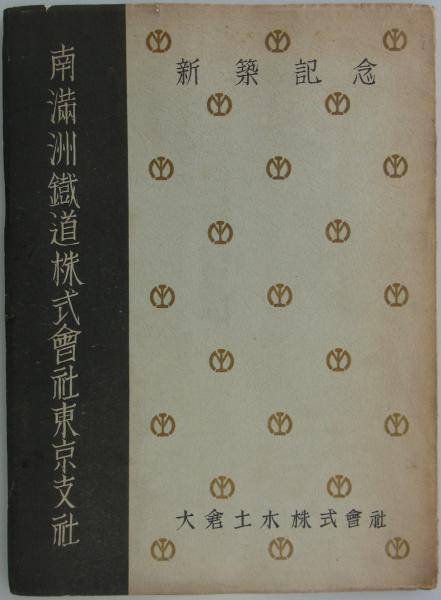 新築記念
南満洲鐵道株式會社東京支社
大倉土木株式會社